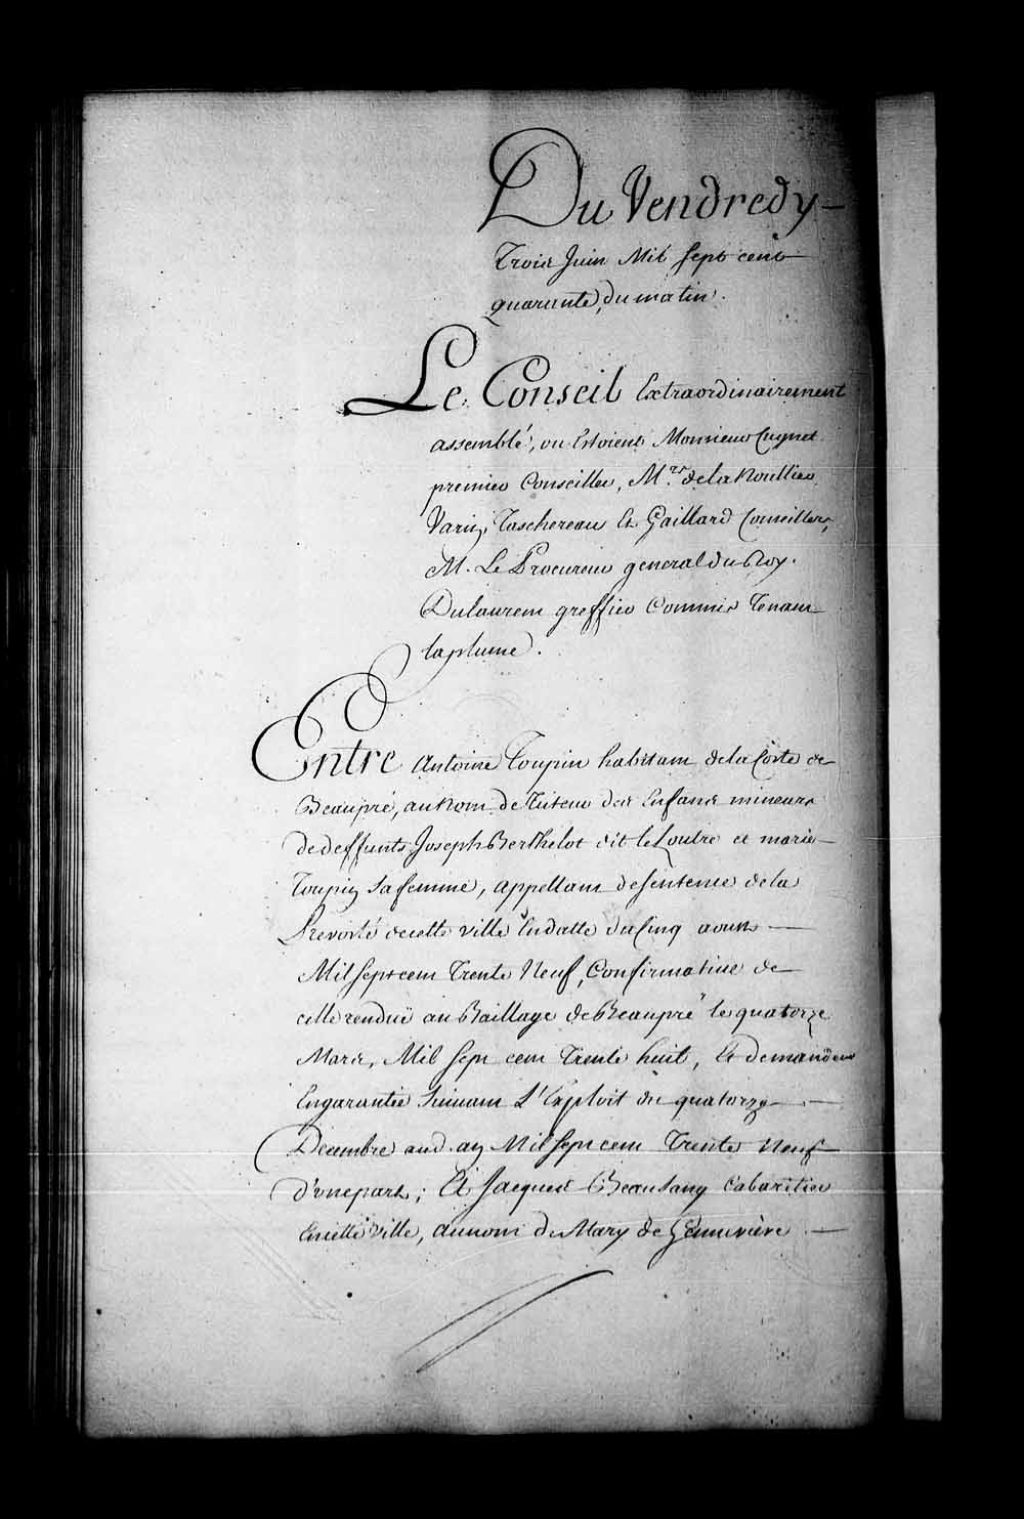 Du Vendredy
Trois Juin Mil sept cent
quarante, du matin.
Le Conseil Extraordinairement
assemblé, ou Estoient Monsieur Cugnet
premier Conseiller, M.rs de la Noullier
Varin, Taschereau Et Gaillard Conseillers,
M. Le Procureur general du Roy.
Dulaurent greffier Commis Tenant
la plume.
Entre Antoine Toupin habitant de la Coste de
Beaupré, au Nom de Tuteur des Enfans mineurs
de deffunts Joseph Berthelot dit le Loutre et marie
Toupin sa femme, appellant de sentence de la
Prevosté de cette ville En datte du Cinq aoust
Mil sept cent Trente Neuf, Confirmative de
celle rendue au Baillage de Beaupré le quatorze
Mars, Mil sept cent Trente huit, Et demandeur
En garantie suivant L'Exploit du quatorze
Decembre aud. an Mil sept cent Trente Neuf
d'une part; Et Jacques Beausang Cabaretier
En cette ville, au nom de Mary de Genevieve